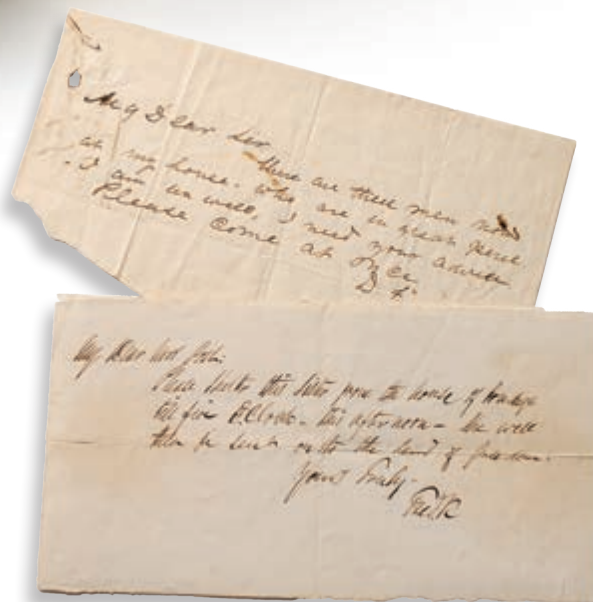 My Dear Sir there are three men now
at my house. who are in great peril.
I am unwell, I need your advice
Please come at once
D. F.
My Dear Mrs Post:
Please shelter this Sister from the house of bondage
till five O'Clock - this afternoon - She will
then be sent on to the land of freedom.
Yours truly -
Fredk